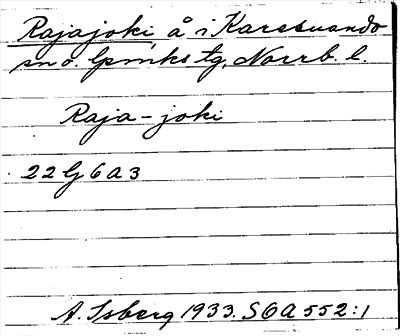 Rajajoki å i Karesuando
sn o. lpmks tg, Norrb. l.
Raja-joki
22 G 6 A 3
A. Isberg 1933. SOA 552:1